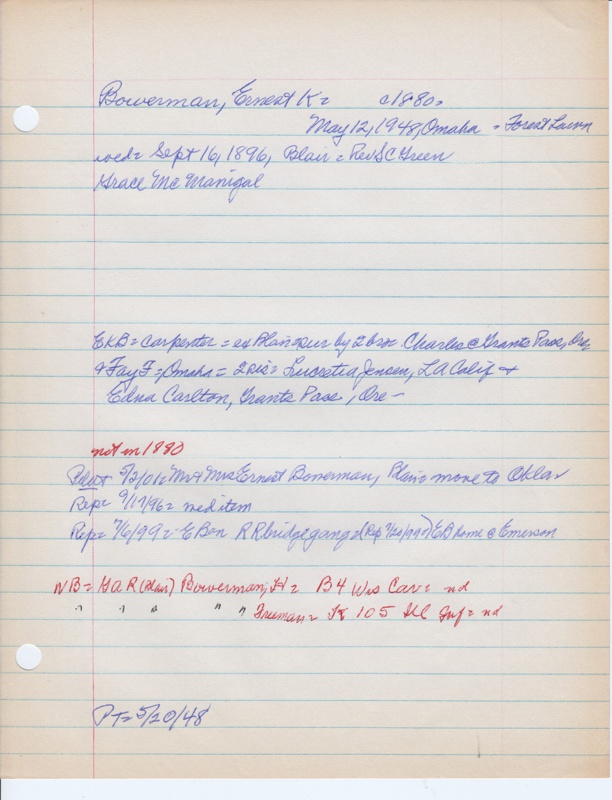 Bowerman, Ernest K= c1880=
May 12, 1948, Omaha = Forest Lawn
wed= Sept 16, 1896, Blair = Rev S C Green
Grace McManigal
EKB = carpenter = ex Blair = sur by 2 bro= Charles @ Grants Pass, Ore
& Fay F =, Omaha = 2 sis = Lucretia Jensen, LA Calif &
Edna Carlton, Grants Pass, Ore -
not in 1880
5/2/01 = Mr & Mrs Ernest Bowerman, Blair = move to Okla
Rep= 9/17/96 = wed item
Rep= 7/6/99 = E B on RR bridge gang (Rep 7/20/99) EB home @ Emerson
NB = GAR (Blair) Bowerman, H = B 4 Wis Cav = nd
" " " " " Freeman = K 105 Ill Inf = nd
PT= 5/20/48